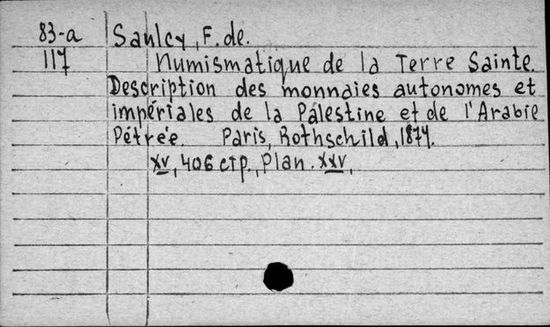 83-a Saulcy, F. de.
117 Numismatique de la Terre Sainte.
Description des monnaies autonomes et
impériales de la Palestine et de l'Arabie
Pétrée. Paris, Rothschild, 1874.
XV, 406 стр., Plan. XXV.